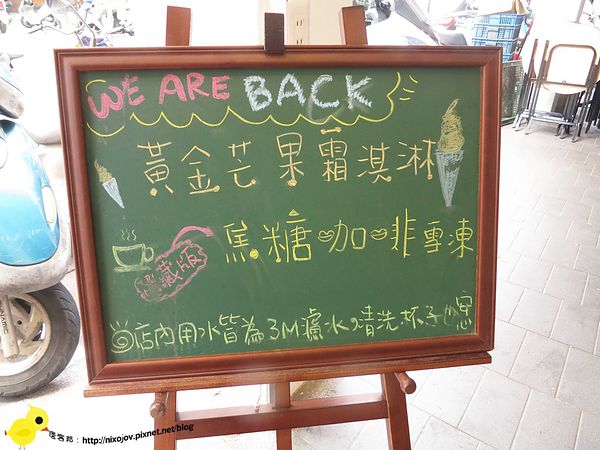 WE ARE BACK
黃金芒果霜淇淋
焦糖咖啡雪凍
隱藏版
店內用水皆為3M濾水,清洗杯子也是
痞客邦:http://nixojov.pixnet.net/blog